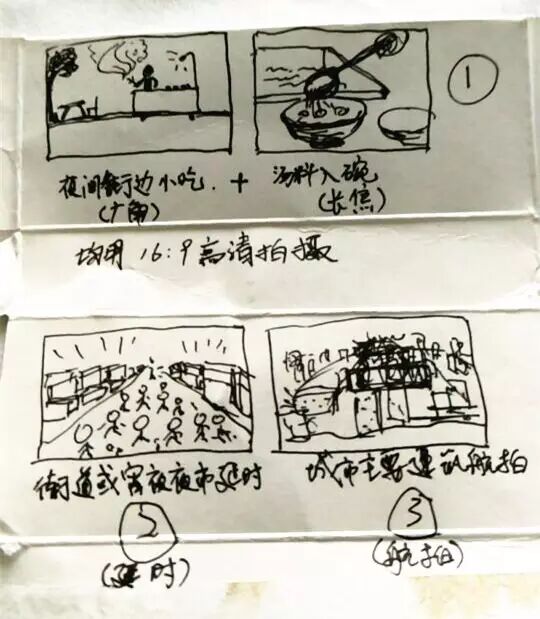 ①
夜间街边小吃. + 汤料入碗
(广角) (长焦)
均用 16:9 高清拍摄
街道或宵夜夜市延时 城市主要建筑航拍
② ③
(延时) (航拍)